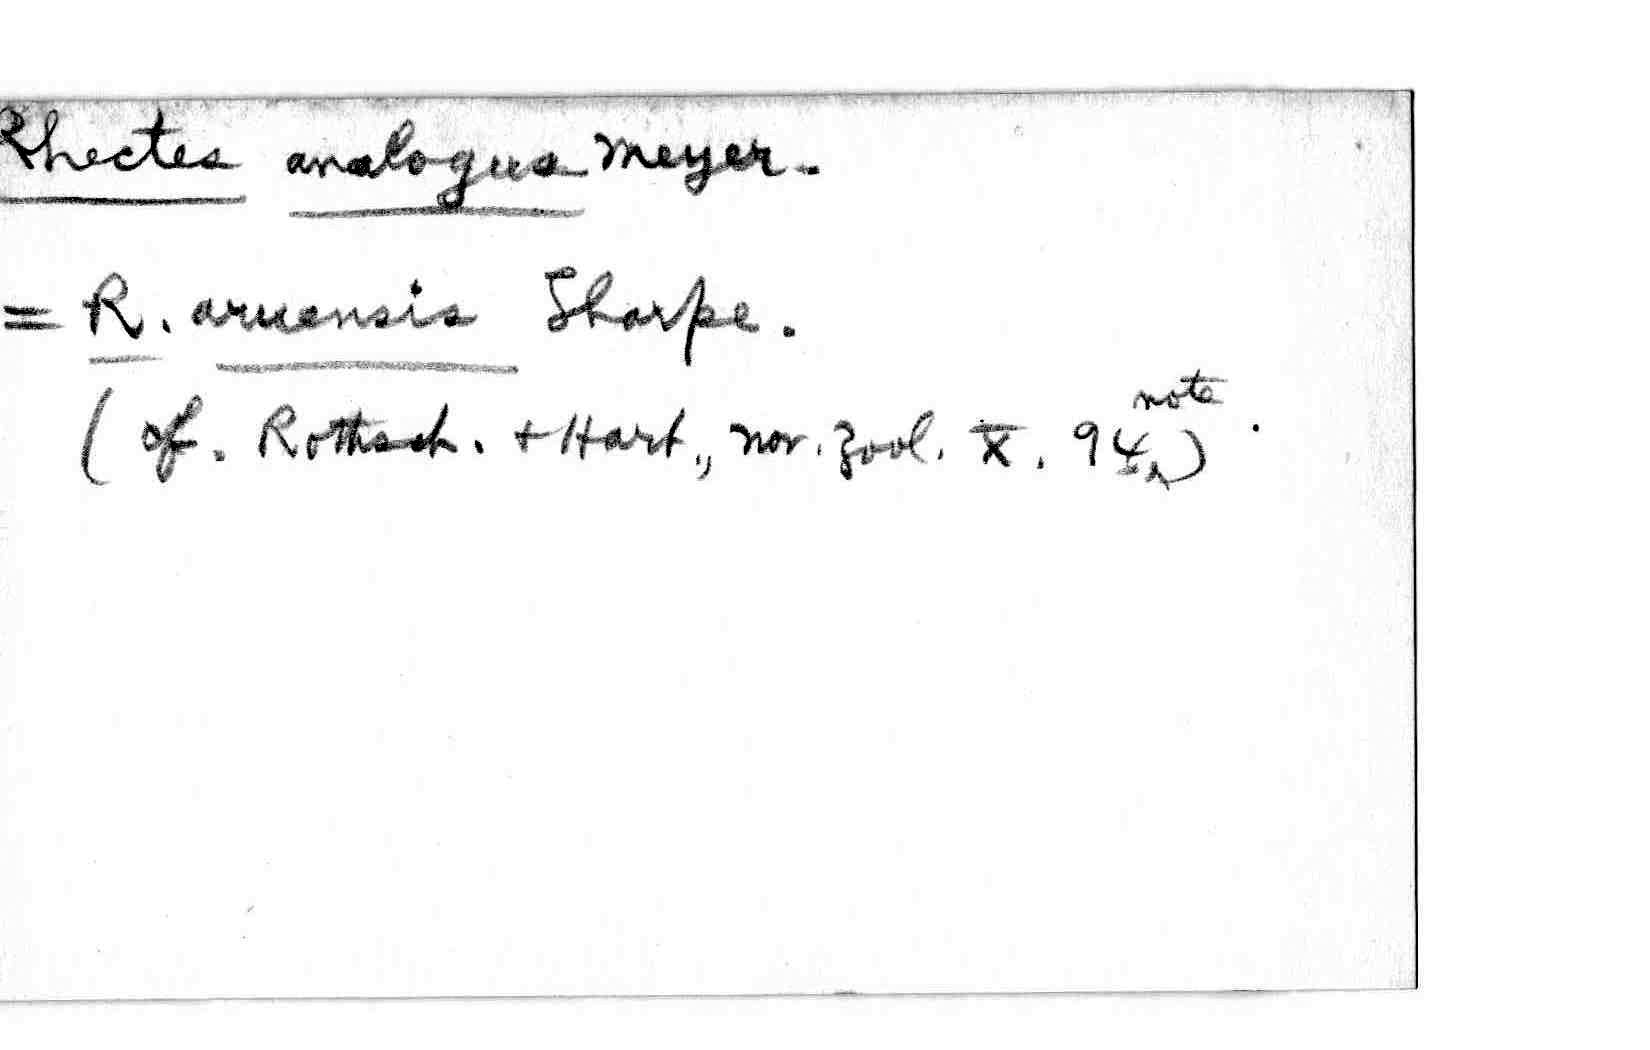 Rhectes analogus Meyer.
= R. aruensis Sharpe.
(cf. Rothsch. + Hart., Nov. Zool. X. 94 note).